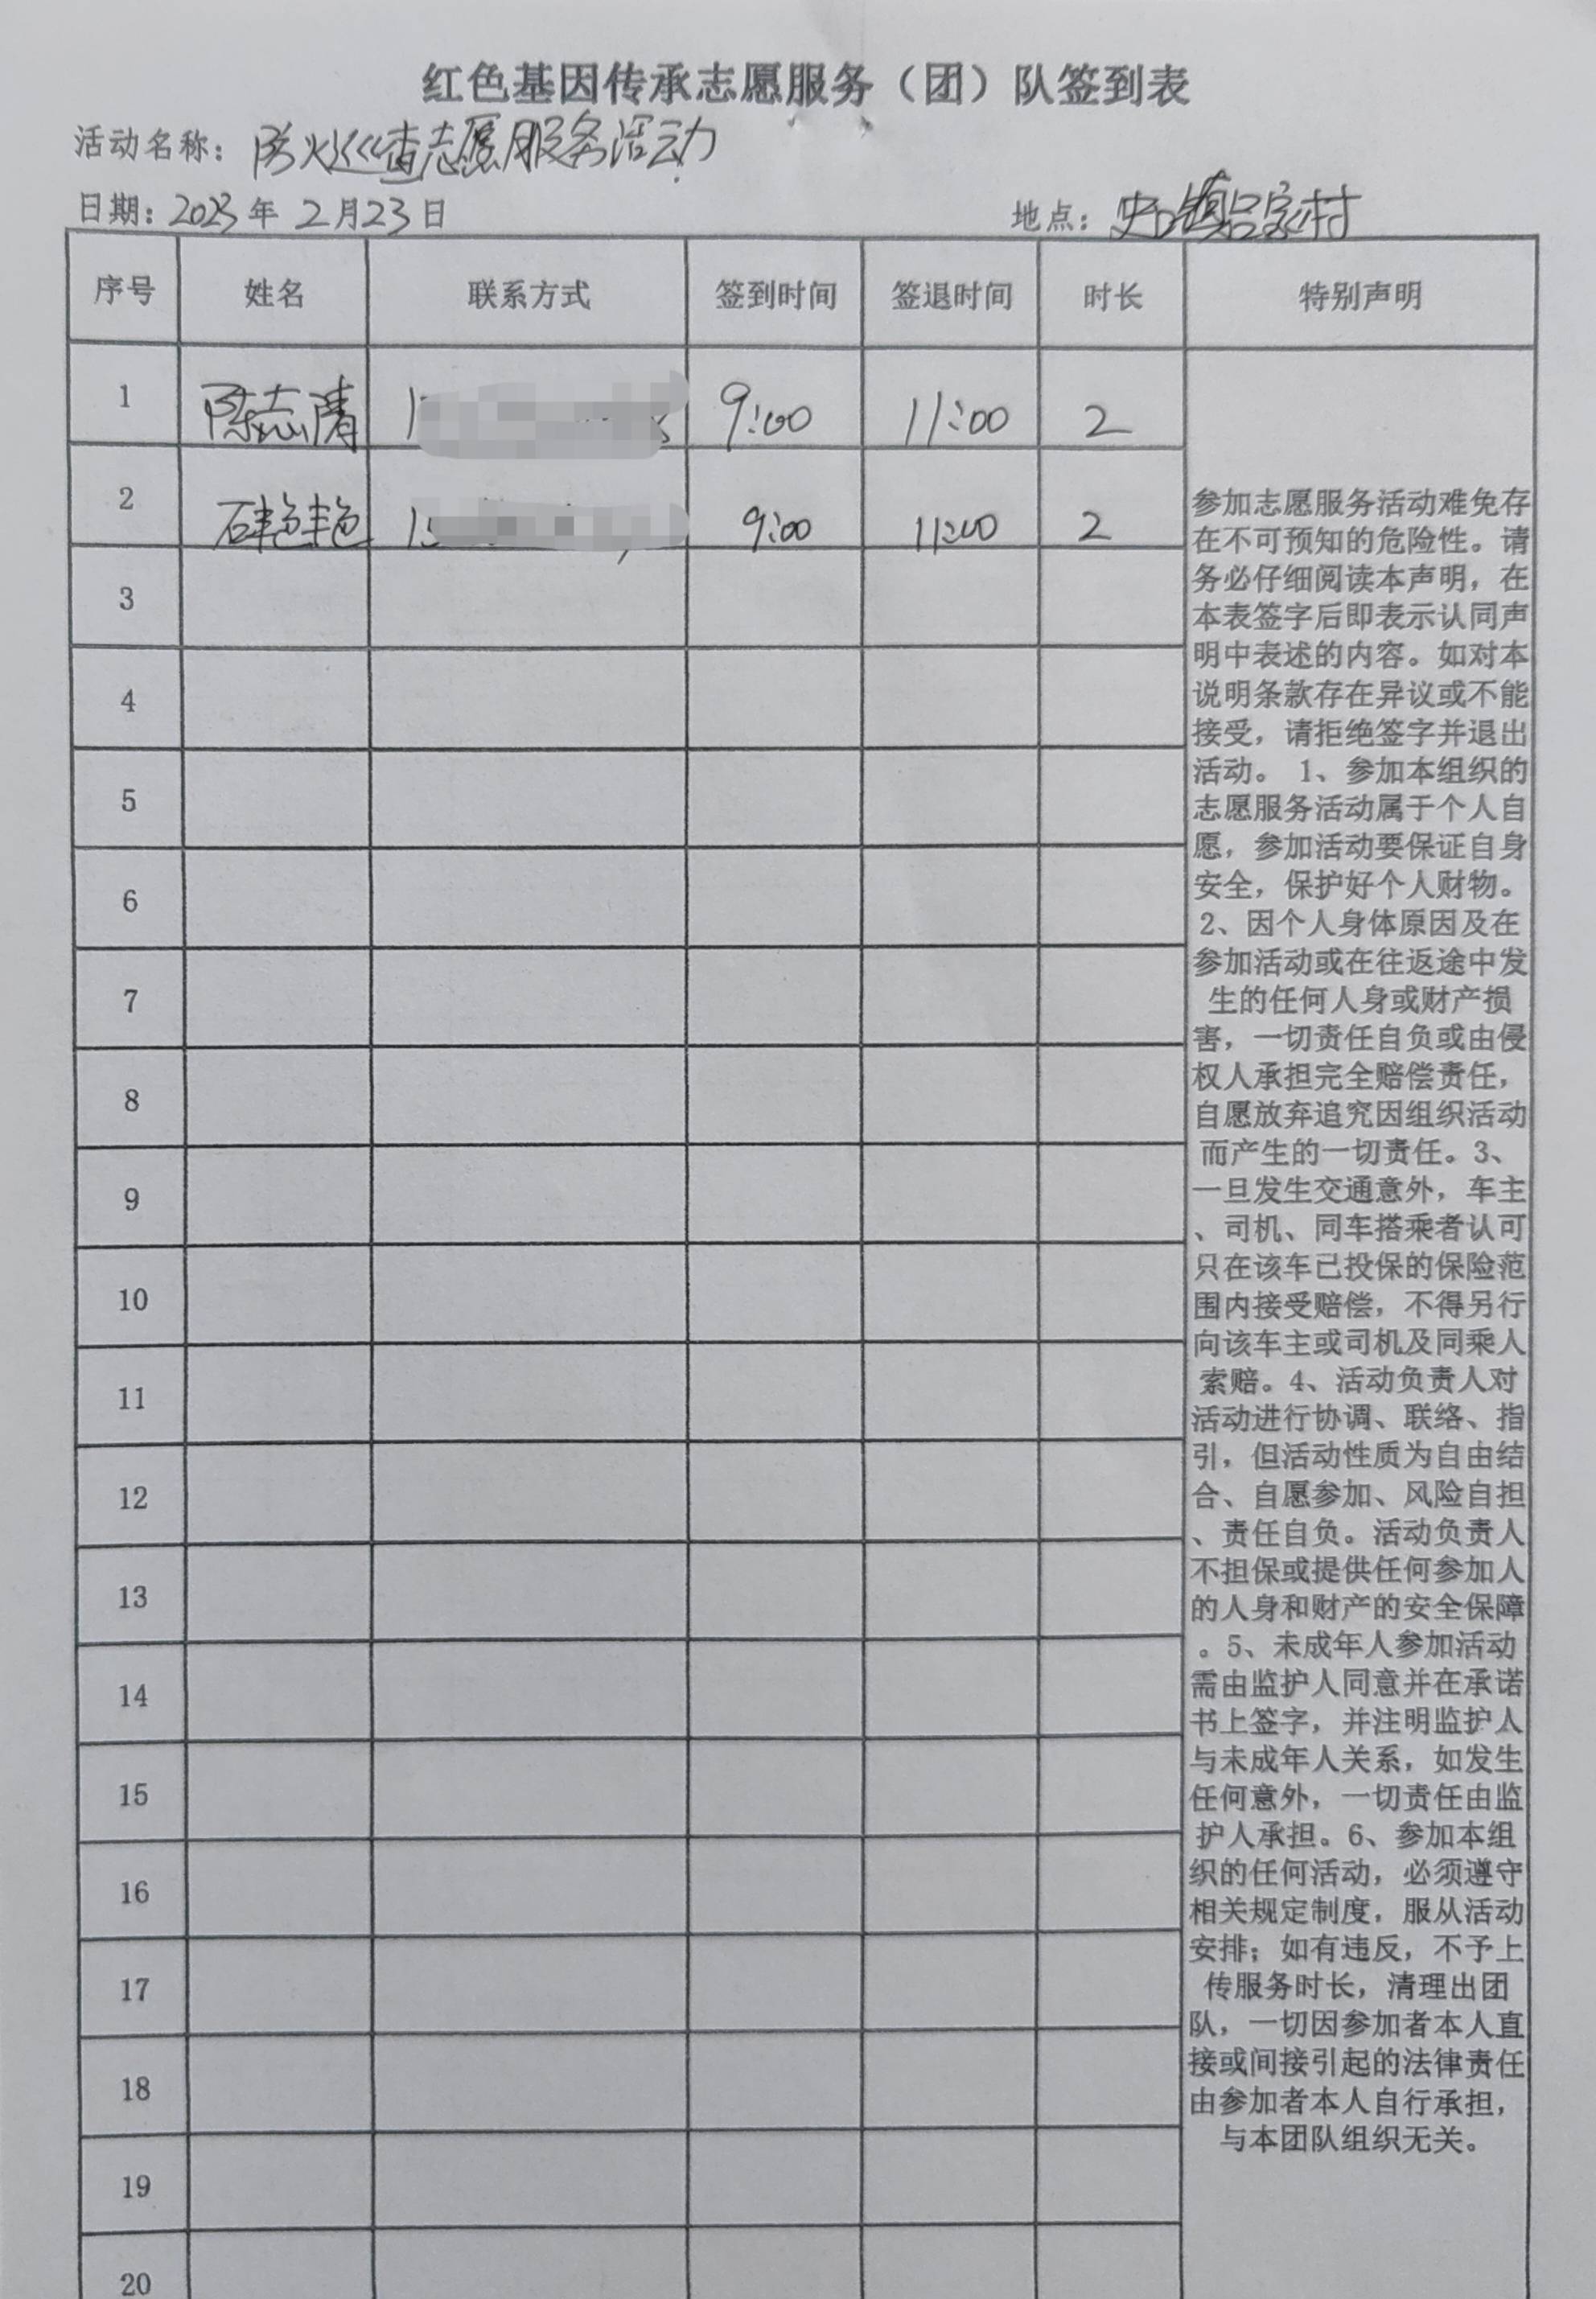 红色基因传承志愿服务（团）队签到表
活动名称：防火巡查志愿服务活动
日期：2023年 2月23日 地点：史口镇吕家村
序号 姓名 联系方式 签到时间 签退时间 时长 特别声明
1 陈志清 9:00 11:00 2
2 石艳艳 9:00 11:00 2
3
4
5
6
7
8
9
10
11
12
13
14
15
16
17
18
19
20
参加志愿服务活动难免存
在不可预知的危险性。请
务必仔细阅读本声明，在
本表签字后即表示认同声
明中表述的内容。如对本
说明条款存在异议或不能
接受，请拒绝签字并退出
活动。 1、参加本组织的
志愿服务活动属于个人自
愿，参加活动要保证自身
安全，保护好个人财物。
2、因个人身体原因及在
参加活动或在往返途中发
生的任何人身或财产损
害，一切责任自负或由侵
权人承担完全赔偿责任，
自愿放弃追究因组织活动
而产生的一切责任。3、
一旦发生交通意外，车主
、司机、同车搭乘者认可
只在该车已投保的保险范
围内接受赔偿，不得另行
向该车主或司机及同乘人
索赔。4、活动负责人对
活动进行协调、联络、指
引，但活动性质为自由结
合、自愿参加、风险自担
、责任自负。活动负责人
不担保或提供任何参加人
的人身和财产的安全保障
。5、未成年人参加活动
需由监护人同意并在承诺
书上签字，并注明监护人
与未成年人关系，如发生
任何意外，一切责任由监
护人承担。6、参加本组
织的任何活动，必须遵守
相关规定制度，服从活动
安排；如有违反，不予上
传服务时长，清理出团
队，一切因参加者本人直
接或间接引起的法律责任
由参加者本人自行承担，
与本团队组织无关。